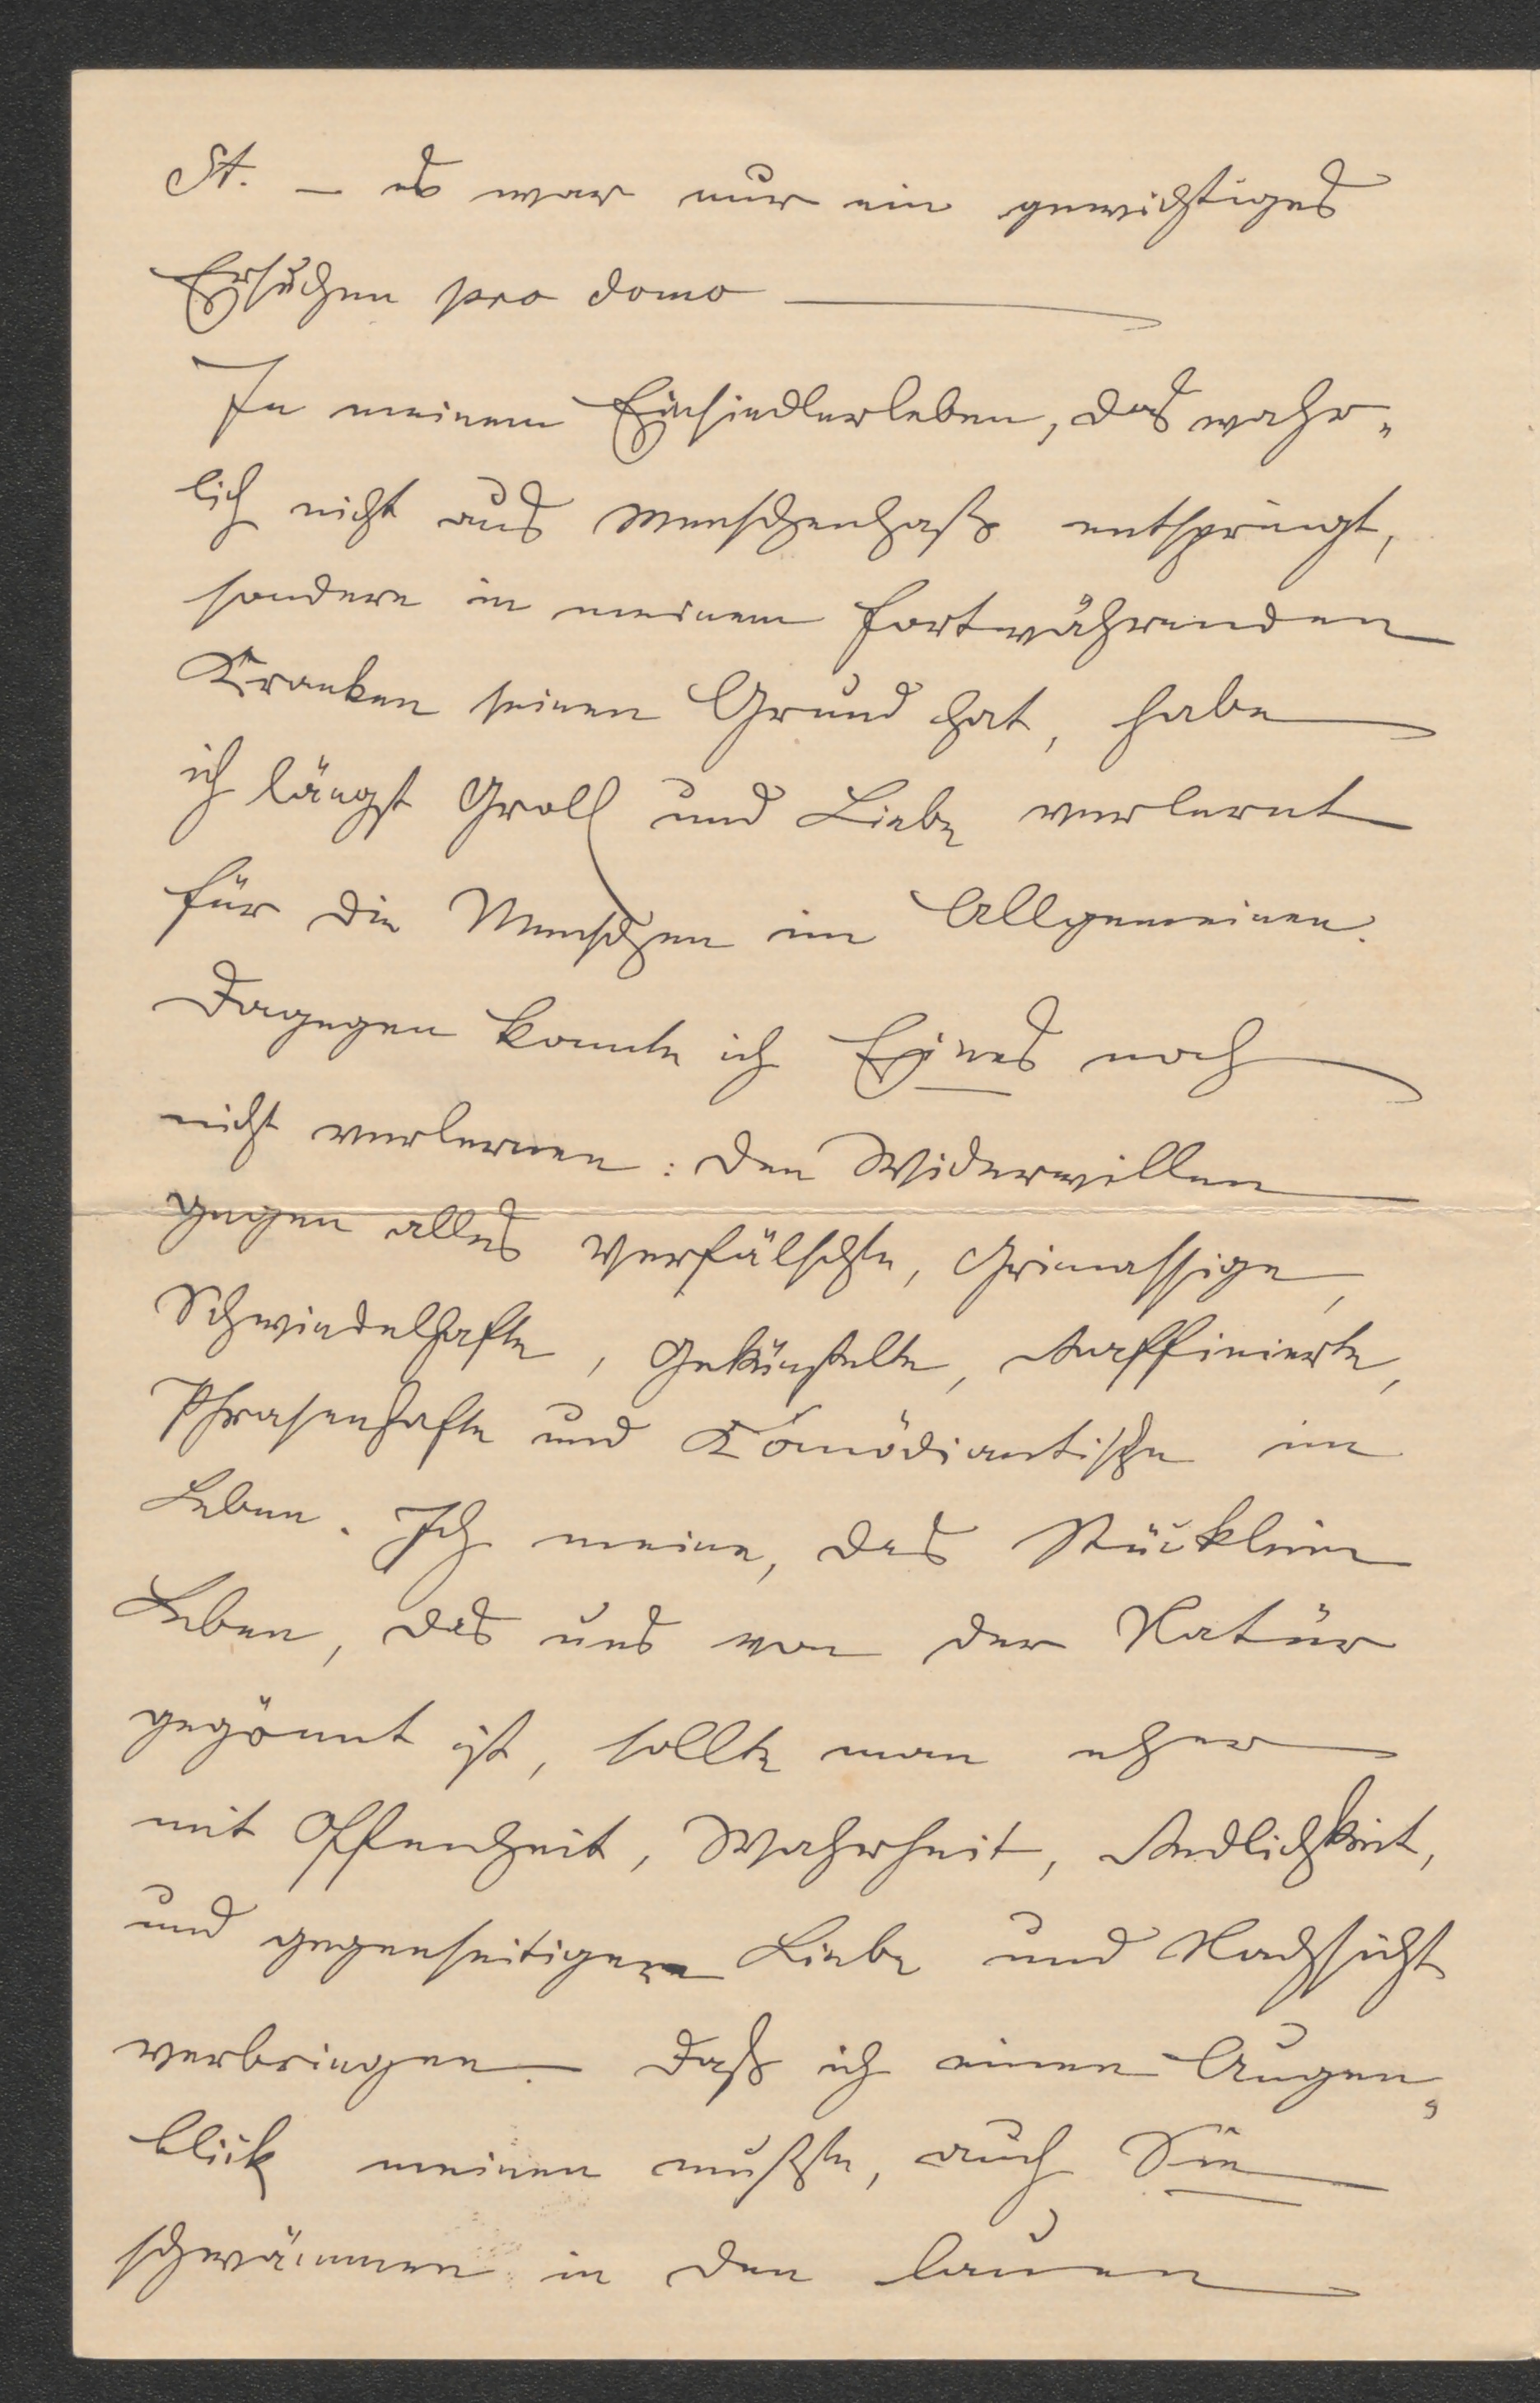 St. – es war nur ein gewichtiges
Ersuchen pro domo —
In meinem Einsiedlerleben, das wahr-
lich nicht aus Menschenhaß entspringt,
sondern in meinem fortwährenden
Kranken seinen Grund hat, habe
ich längst Groll und Liebe verlernt
für die Menschen im Allgemeinen.
Dagegen konnte ich Eines noch
nicht verlernen: den Widerwillen
gegen alles Verfälschte, Grimassige,
Schwindelhafte, Gekünstelte, Raffinierte,
Phrasenhafte und Komödiantische im
Leben. Ich meine, das Stücklein
Leben, das uns von der Natur
gegönnt ist, sollte man eher
mit Offenheit, Wahrheit, Redlichkeit,
und gegenseitiger Liebe und Nachsicht
verbringen. – Daß ich einen Augen-
blick meinen mußte, auch Sie
schwämmen in den lauen